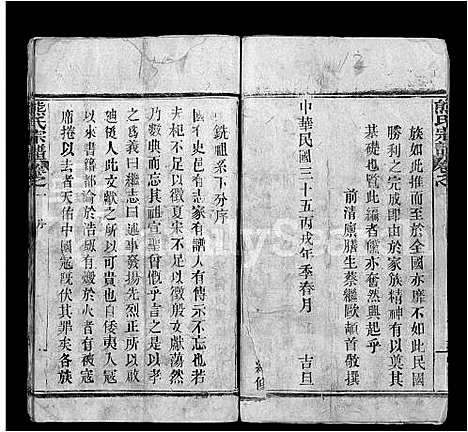 熊氏宗譜
族如此推而至於全國亦靡不如此民國
勝利之完成即由於家族精神有以奠其
基礎也覽此編者儻亦奮然興起乎
前清廩膳生蔡繼歐頓首敬撰
中華民國三十五丙戌年季春月 吉旦
銑祖系下分序
國有史邑有志家有譜人有傳示不忘也若
杞不足以徵夏宋不足以徵殷文獻蕩然
乃數典而忘其祖宣聖曾慨乎言之是以孝
為義曰繼志曰述事發揚光烈正所以啟
勉後人此文獻之大可以已也自倭夷入寇
以來書籍都論於浩刼有燬於火者有被寇
席捲以去者天佑中國寇既伏其罪矣各族
熊氏宗譜
序